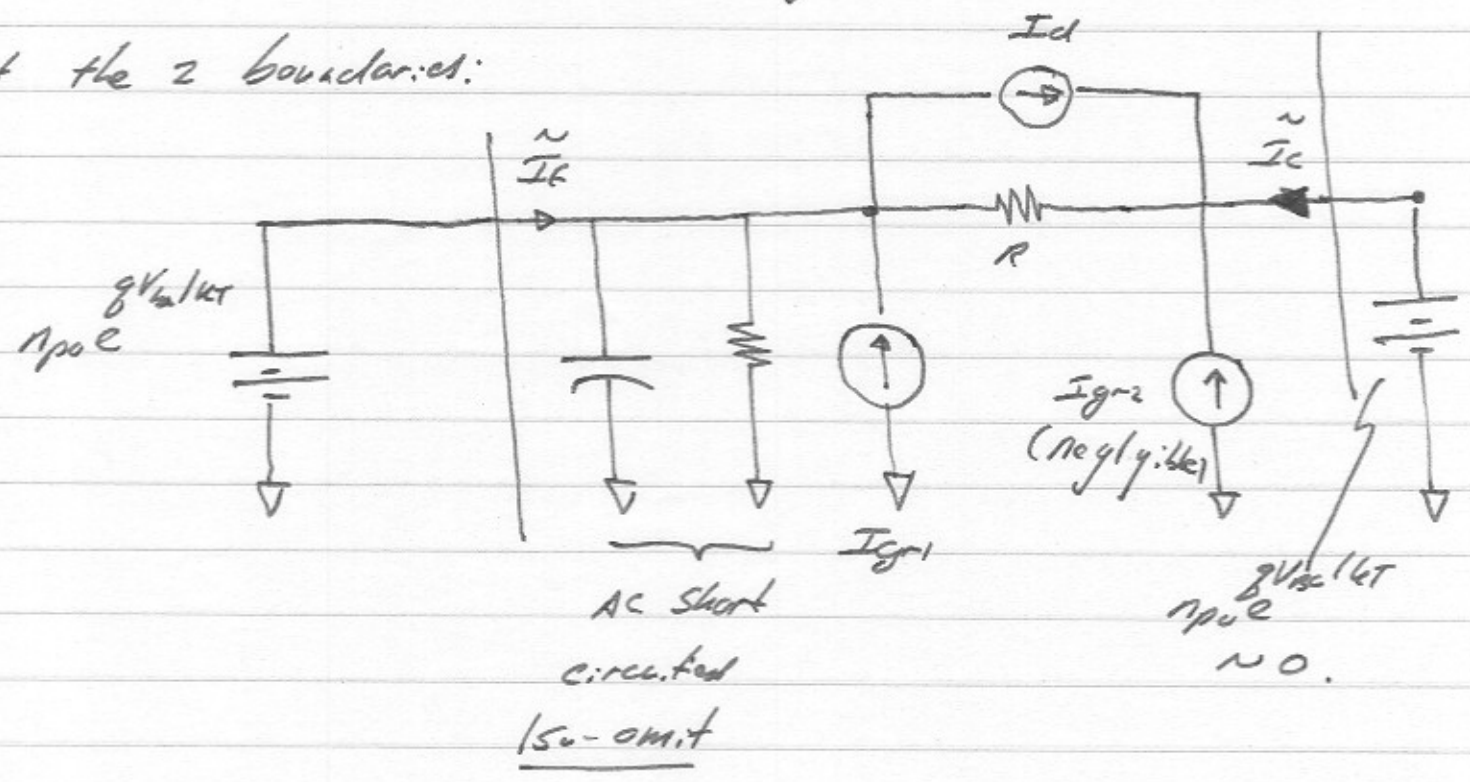 the 2 boundaries:
Id
~
IE
~
Ic
R
npo e qVbe/kT
Igr2
(neglyible)
Igr1
AC short
circuited
/so - omit
npo e qVBC/kT
~ 0.